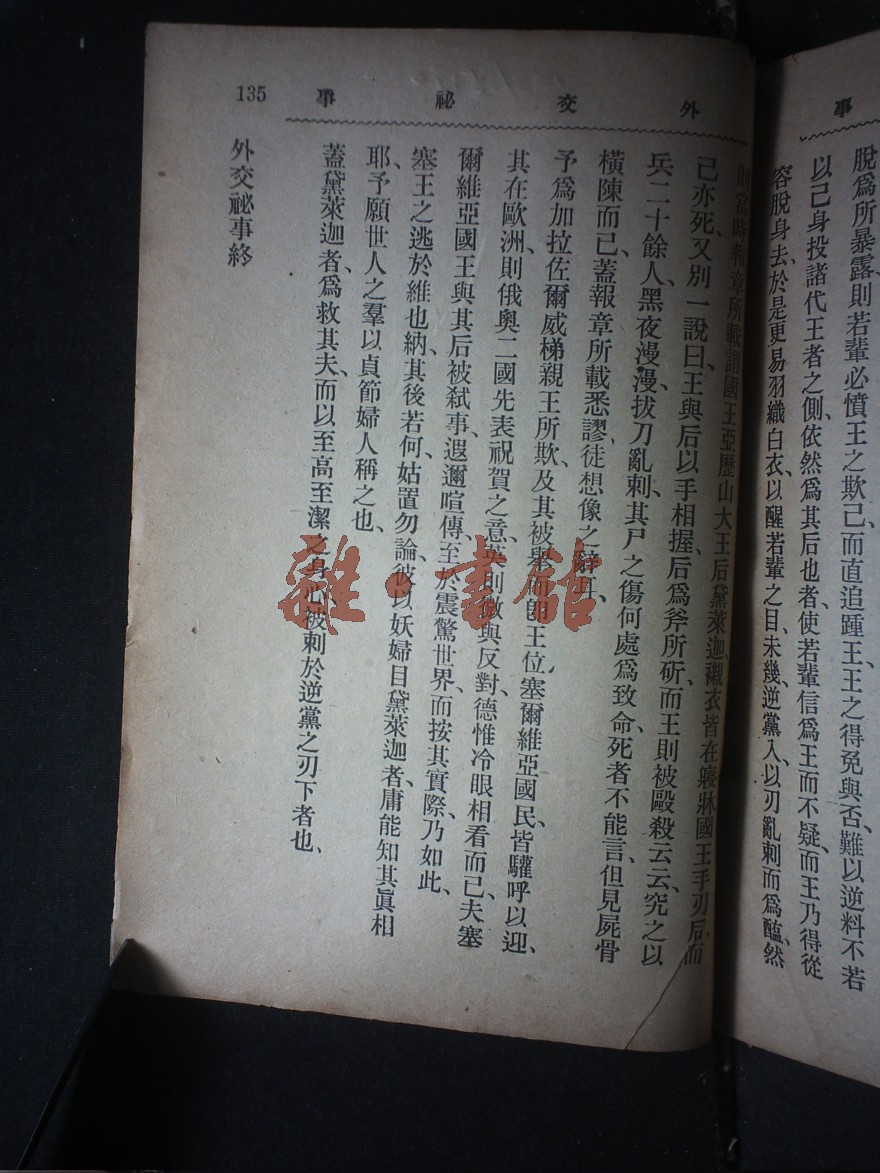 事
脫爲所暴露、則若輩必憤王之欺己、而直追踵王、王之得免與否、難以逆料、不若
以己身投諸代王者之側、依然爲其后也者、使若輩信爲王而不疑、而王乃得從
容脫身去、於是更易羽織白衣、以醒若輩之目、未幾、逆黨入、以刃亂刺而爲醢、然
外交祕事
135
則當時報章所載、謂國王亞歷山大王后黛萊迦、襯衣皆在寢牀、國王手刃后、而
己亦死、又別一說曰、王與后以手相握、后爲斧所斫、而王則被毆殺云云、究之以
兵二十餘人、黑夜漫漫、拔刀亂刺、其尸之傷何處爲致命、死者不能言、但見屍骨
橫陳而已、蓋報章所載悉謬、徒想像之辭耳、
予爲加拉佐爾威梯親王所欺、及其被舉而卽王位、塞爾維亞國民、皆驩呼以迎、
其在歐洲、則俄奧二國先表祝賀之意、英則微與反對、德惟冷眼相看而已、夫塞
爾維亞國王與其后被弒事、遐邇喧傳、至於震驚世界、而按其實際、乃如此、
塞王之逃於維也納、其後若何、姑置勿論、彼以妖婦目黛萊迦者、庸能知其眞相
耶、予願世人之羣以貞節婦人稱之也、
蓋黛萊迦者、爲救其夫、而以至高至潔之身心、被刺於逆黨之刃下者也、
外交祕事終
雜·書館